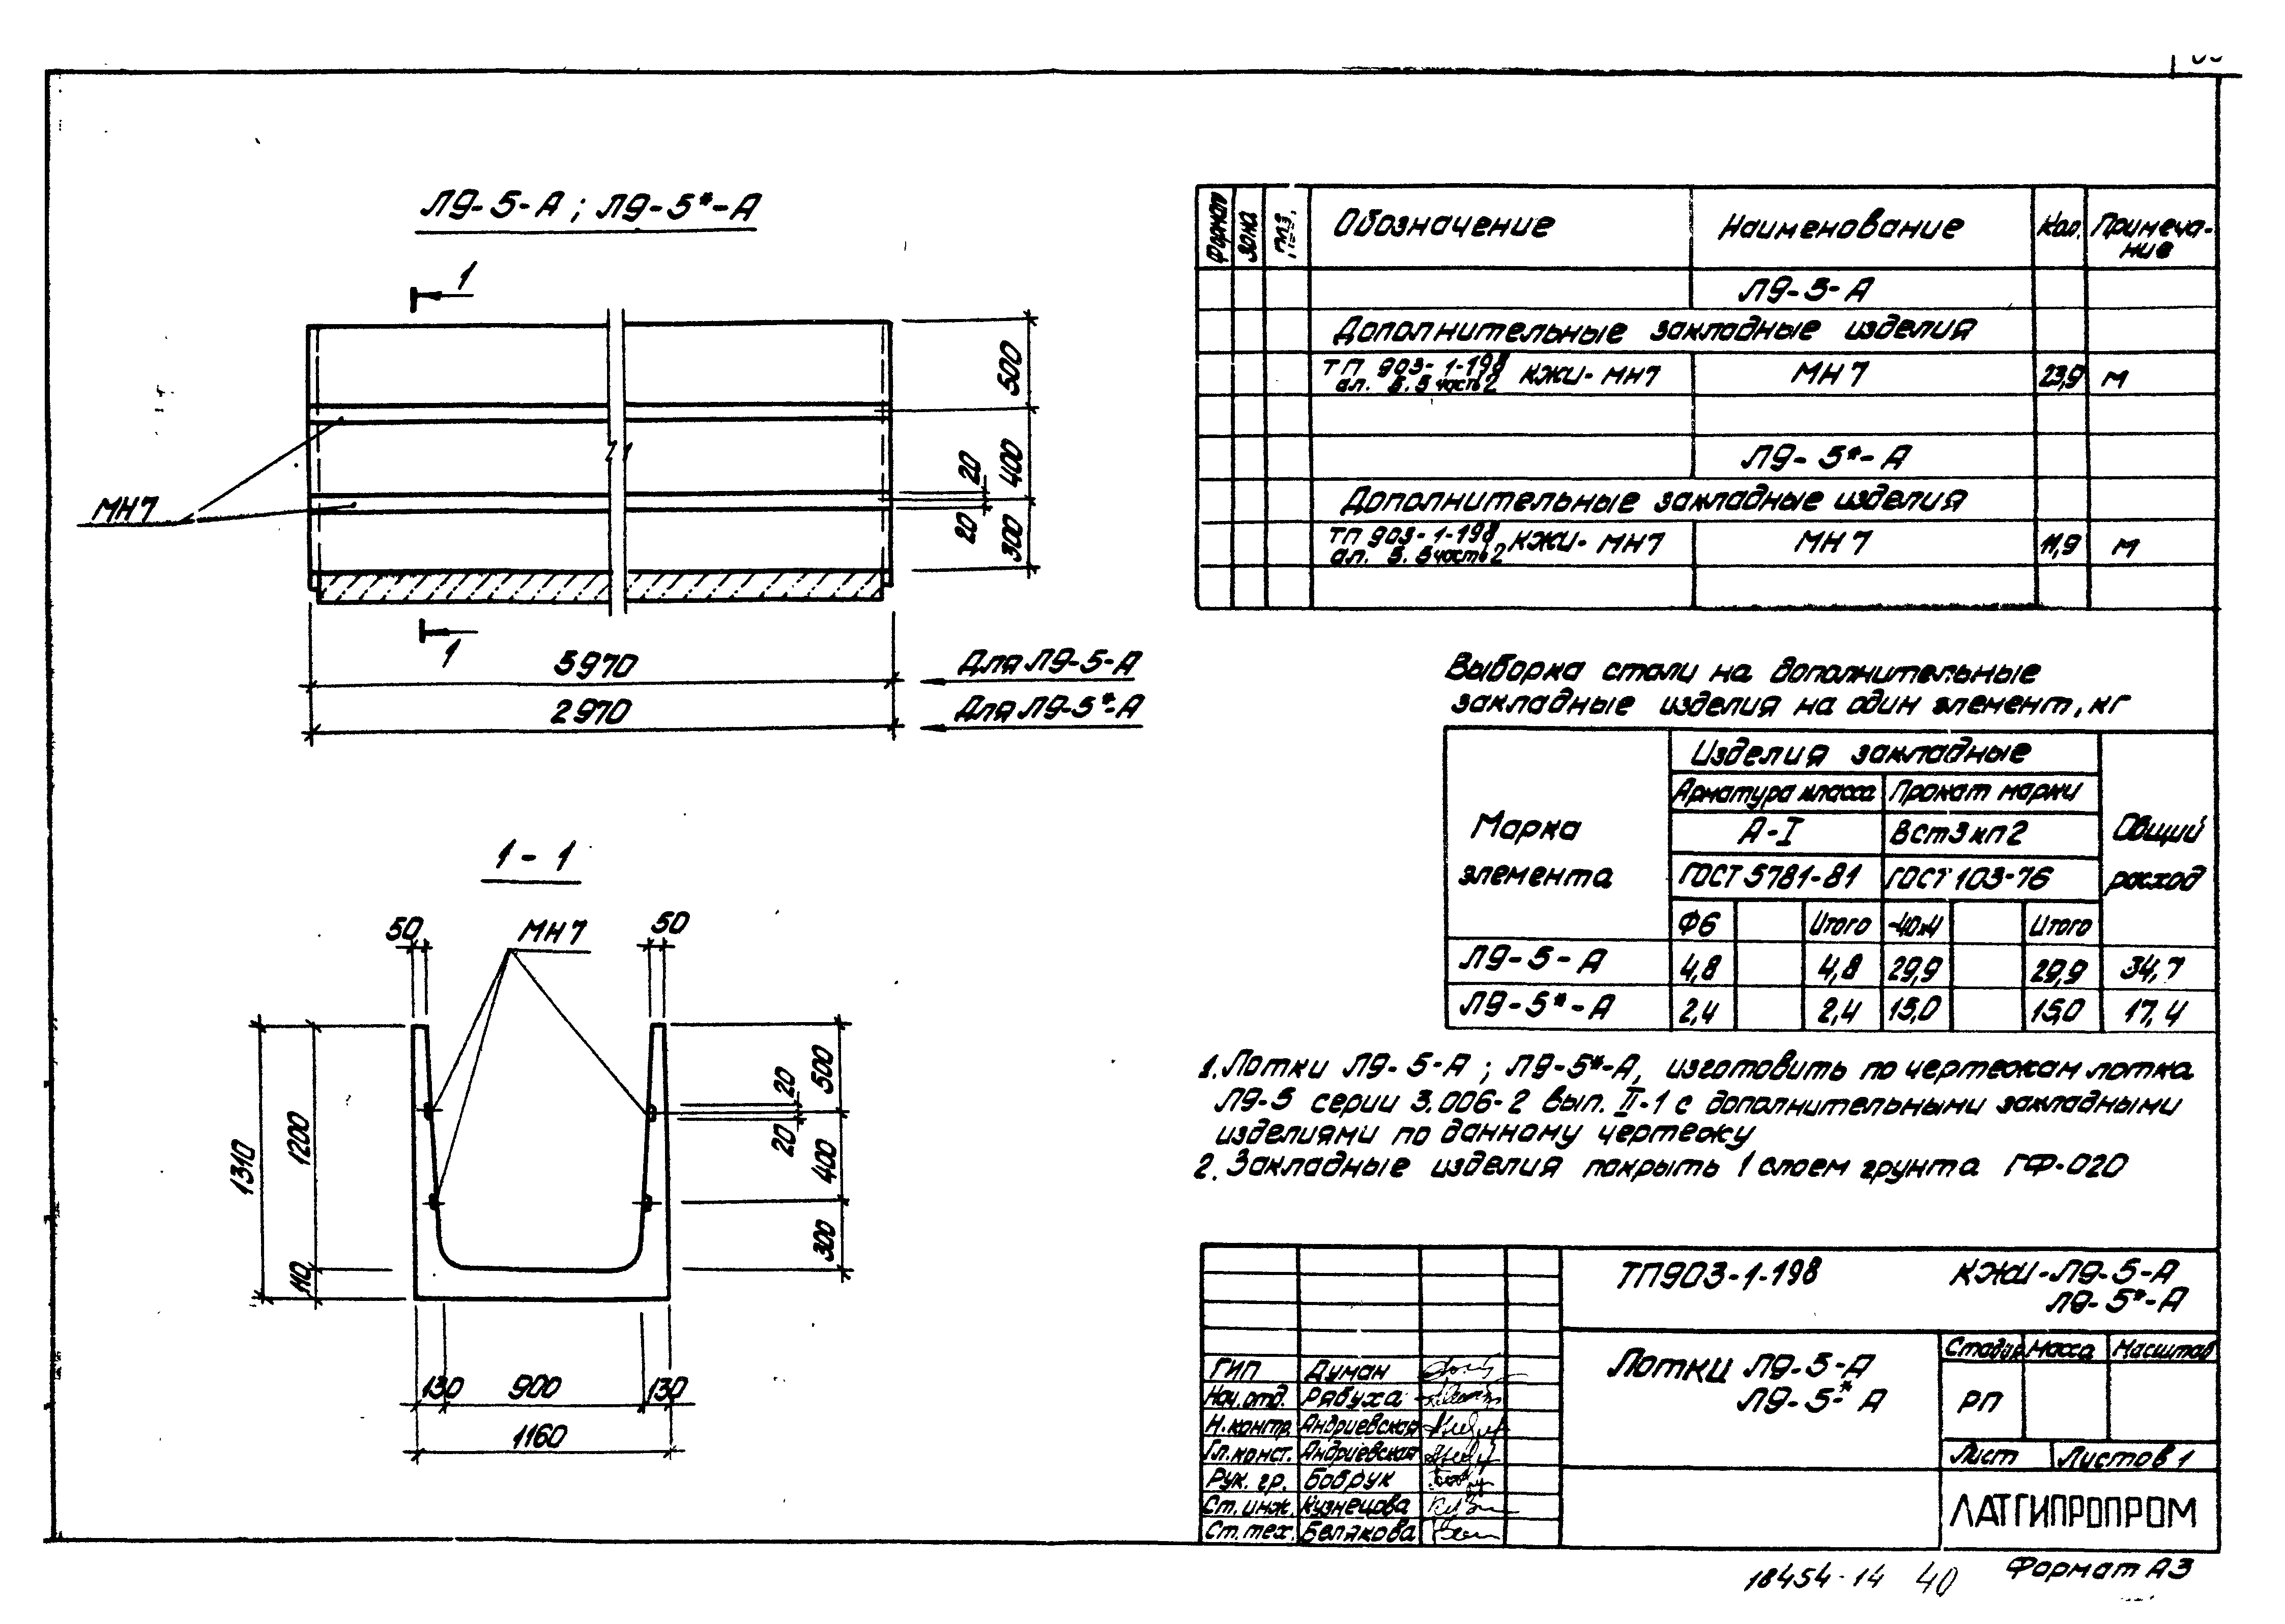 Л9-5-А ; Л9-5*-А
1
500
400
300
20
20
МН7
1
5970
Для Л9-5-А
2970
Для Л9-5*-А
1 - 1
50
МН7
50
1310
1200
110
20
20
500
400
300
130
900
130
1160
Формат
Зона
Поз.
Обозначение
Наименование
Кол.
Примеча-
ние
Л9-5-А
Дополнительные закладные изделия
ТП 903-1-198
ал. 5.5 часть 2
КЖИ-МН7
МН7
23,9
м
Л9-5*-А
Дополнительные закладные изделия
ТП 903-1-198
ал. 5.5 часть 2
КЖИ-МН7
МН7
11,9
м
Выборка стали на дополнительные
закладные изделия на один элемент, кг
Марка
элемента
Изделия закладные
Общий
расход
Арматура класса
Прокат марки
А-I
ВСт3кп2
ГОСТ 5781-81
ГОСТ 103-76
Ф6
Итого
-40х4
Итого
Л9-5-А 4,8 4,8 29,9 29,9 34,7
Л9-5*-А 2,4 2,4 15,0 15,0 17,4
1. Лотки Л9-5-А ; Л9-5*-А, изготовить по чертежам лотка
Л9-5 серии 3.006-2 вып. II-1 с дополнительными закладными
изделиями по данному чертежу
2. Закладные изделия покрыть 1 слоем грунта ГФ-020
ТП903-1-198
КЖИ-Л9-5-А
Л9-5*-А
Лотки Л9-5-А
Л9-5-*А
Стадия
Масса
Масштаб
РП
Лист
Листов 1
ЛАТГИПРОПРОМ
ГИП Думан
Нач.отд. Рябуха
Н.контр. Андриевская
Гл.конст. Андриевская
Рук. гр. Бобрук
Ст.инж. Кузнецова
Ст.тех. Белякова
18454-14 40
Формат А3